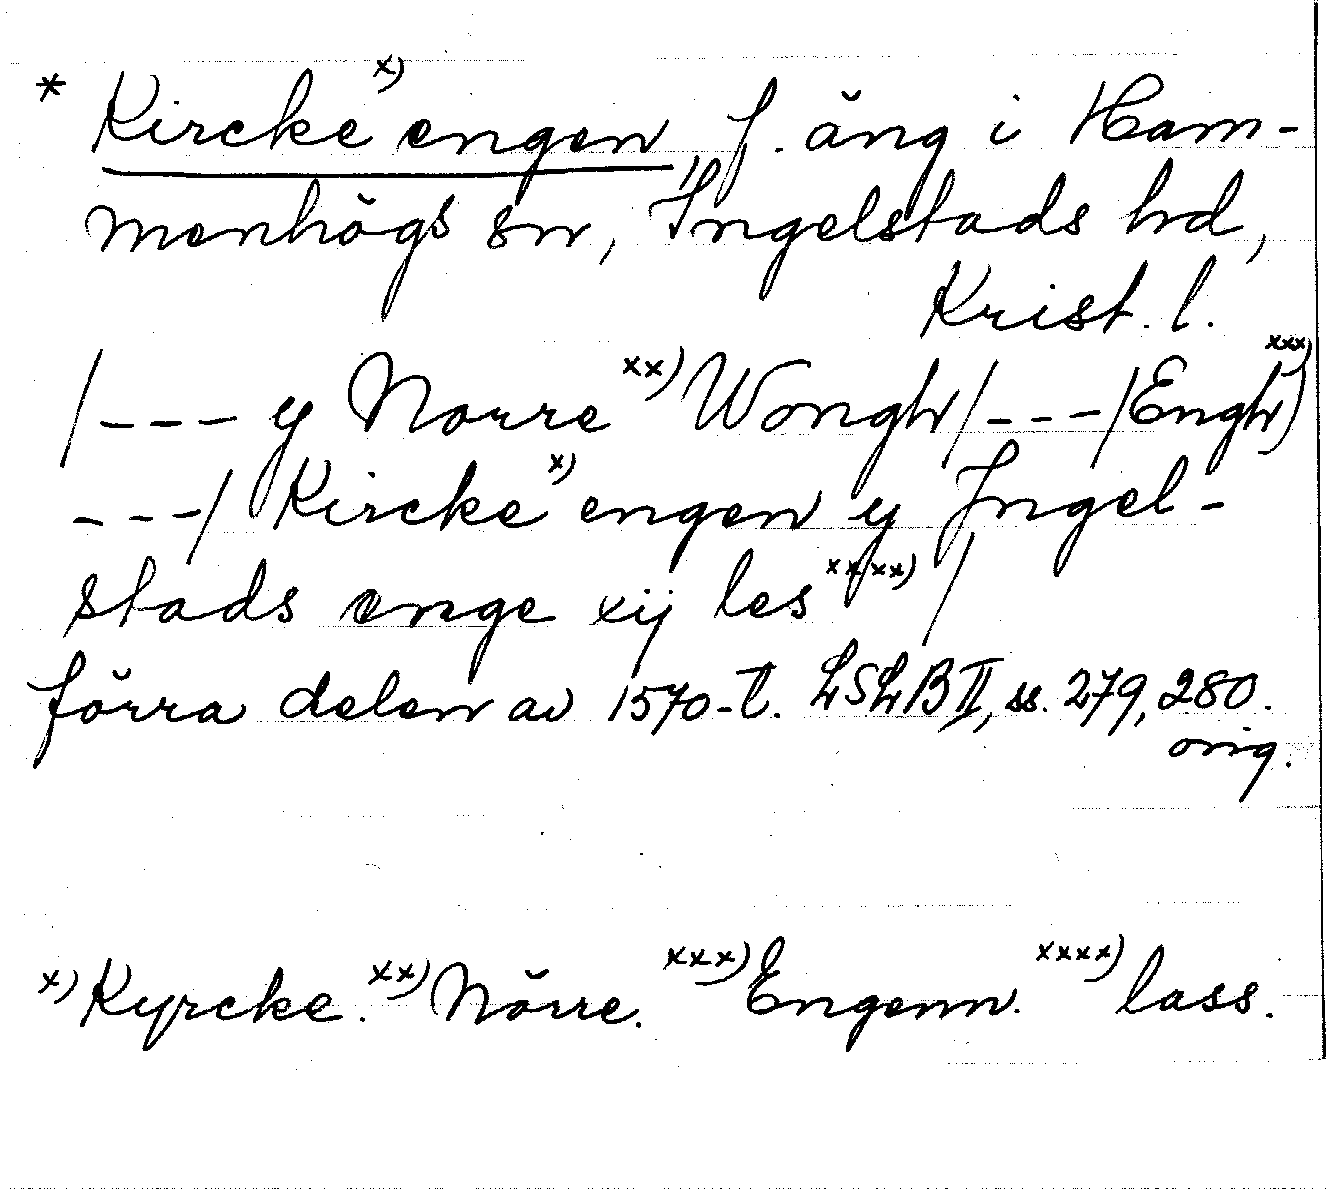 * Kircke x) engen, f. äng i Ham-
menhögs sn, Ingelstads hd,
Krist. l.
/--- y Norre xx) Wongh/---/Engh xxx)
---/ Kircke x) engen y Ingel-
stads enge xij les xxxx) /
förra delen av 1570-t. LSLB II, ss. 279, 280.
orig.
x) Kyrcke. xx) Nörre. xxx) Engenn. xxxx) lass.